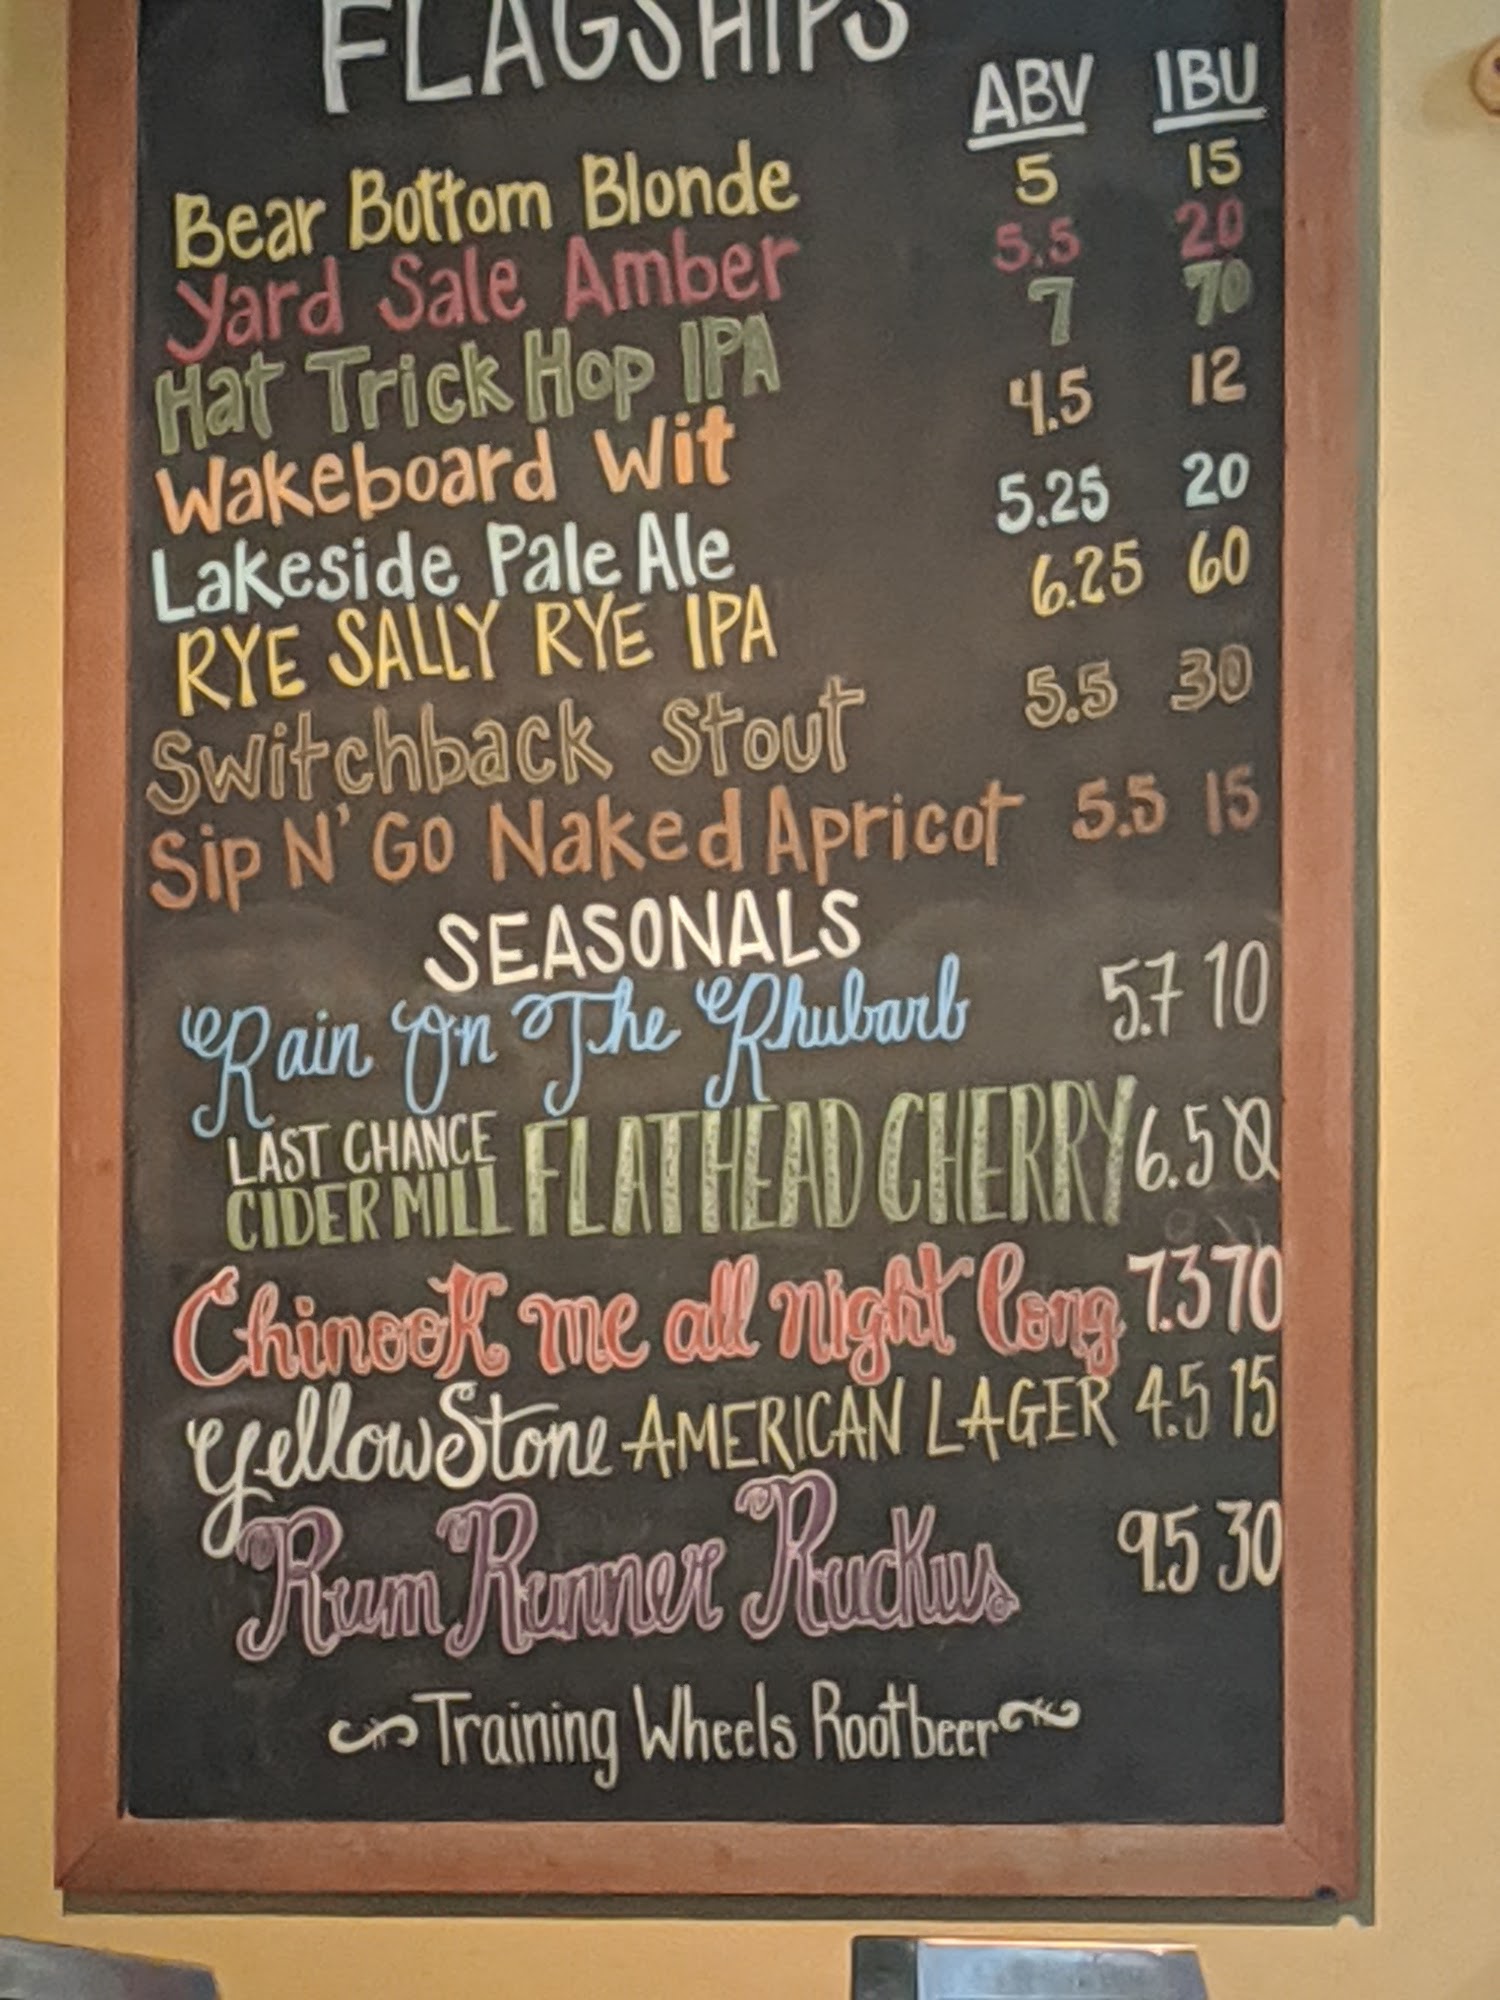 FLAGSHIPS
ABV IBU
Bear Bottom Blonde 5 15
Yard Sale Amber 5.5 20
Hat Trick Hop IPA 7 70
Wakeboard Wit 4.5 12
Lakeside Pale Ale 5.25 20
RYE SALLY RYE IPA 6.25 60
Switchback Stout 5.5 30
Sip N' Go Naked Apricot 5.5 15
SEASONALS
Rain On The Rhubarb 5.7 10
LAST CHANCE
CIDER MILL FLATHEAD CHERRY 6.5
Chinook me all night long 7.3 70
YellowStone AMERICAN LAGER 4.5 15
Rum Runner Ruckus 9.5 30
Training Wheels Rootbeer